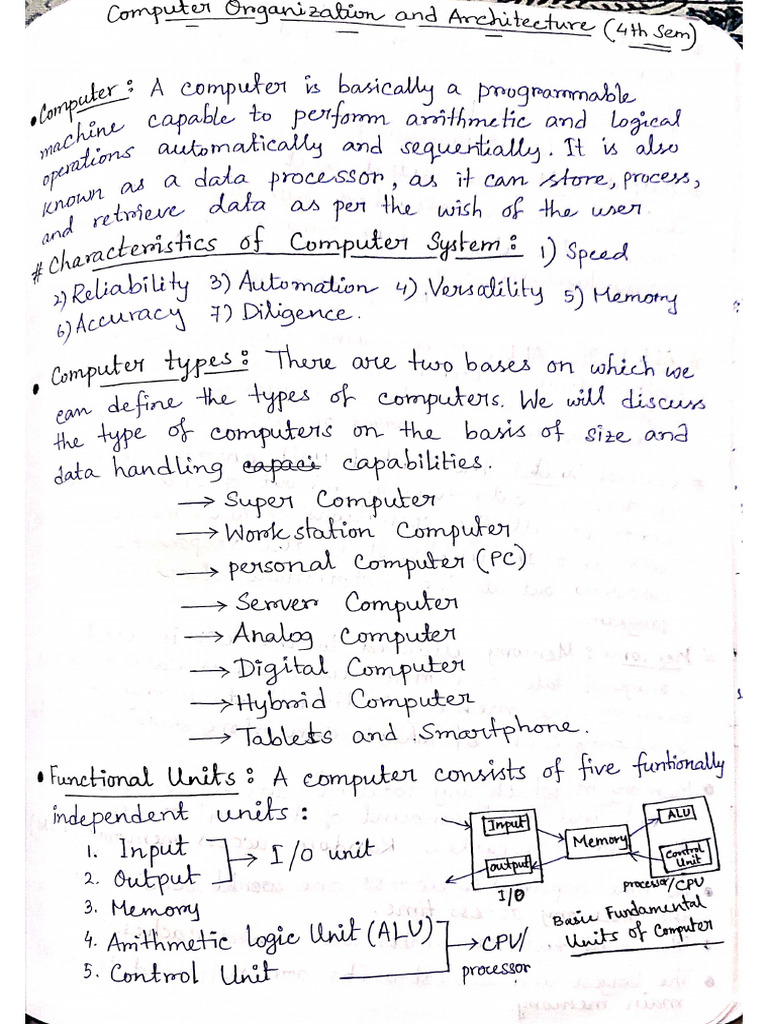 Computer Organization and Architecture (4th Sem)
• Computer : A computer is basically a programmable
machine capable to perform arithmetic and logical
operations automatically and sequentially. It is also
known as a data processor, as it can store, process,
and retrieve data as per the wish of the user
# Characteristics of Computer System : 1) Speed
2) Reliability 3) Automation 4) Versatility 5) Memory
6) Accuracy 7) Diligence.
• Computer types : There are two bases on which we
can define the types of computers. We will discuss
the type of computers on the basis of size and
data handling capaci capabilities.
→ Super Computer
→ Workstation Computer
→ personal Computer (PC)
→ Server Computer
→ Analog Computer
→ Digital Computer
→ Hybrid Computer
→ Tablets and Smartphone.
• Functional Units : A computer consists of five funtionally
independent units :
1. Input
2. Output
→ I/O unit
3. Memory
4. Arithmetic logic Unit (ALU)
5. Control Unit
→ CPU/
processor
Input
output
I/O
Memory
ALU
Control
Unit
processor/CPU
Basic Fundamental
Units of Computer